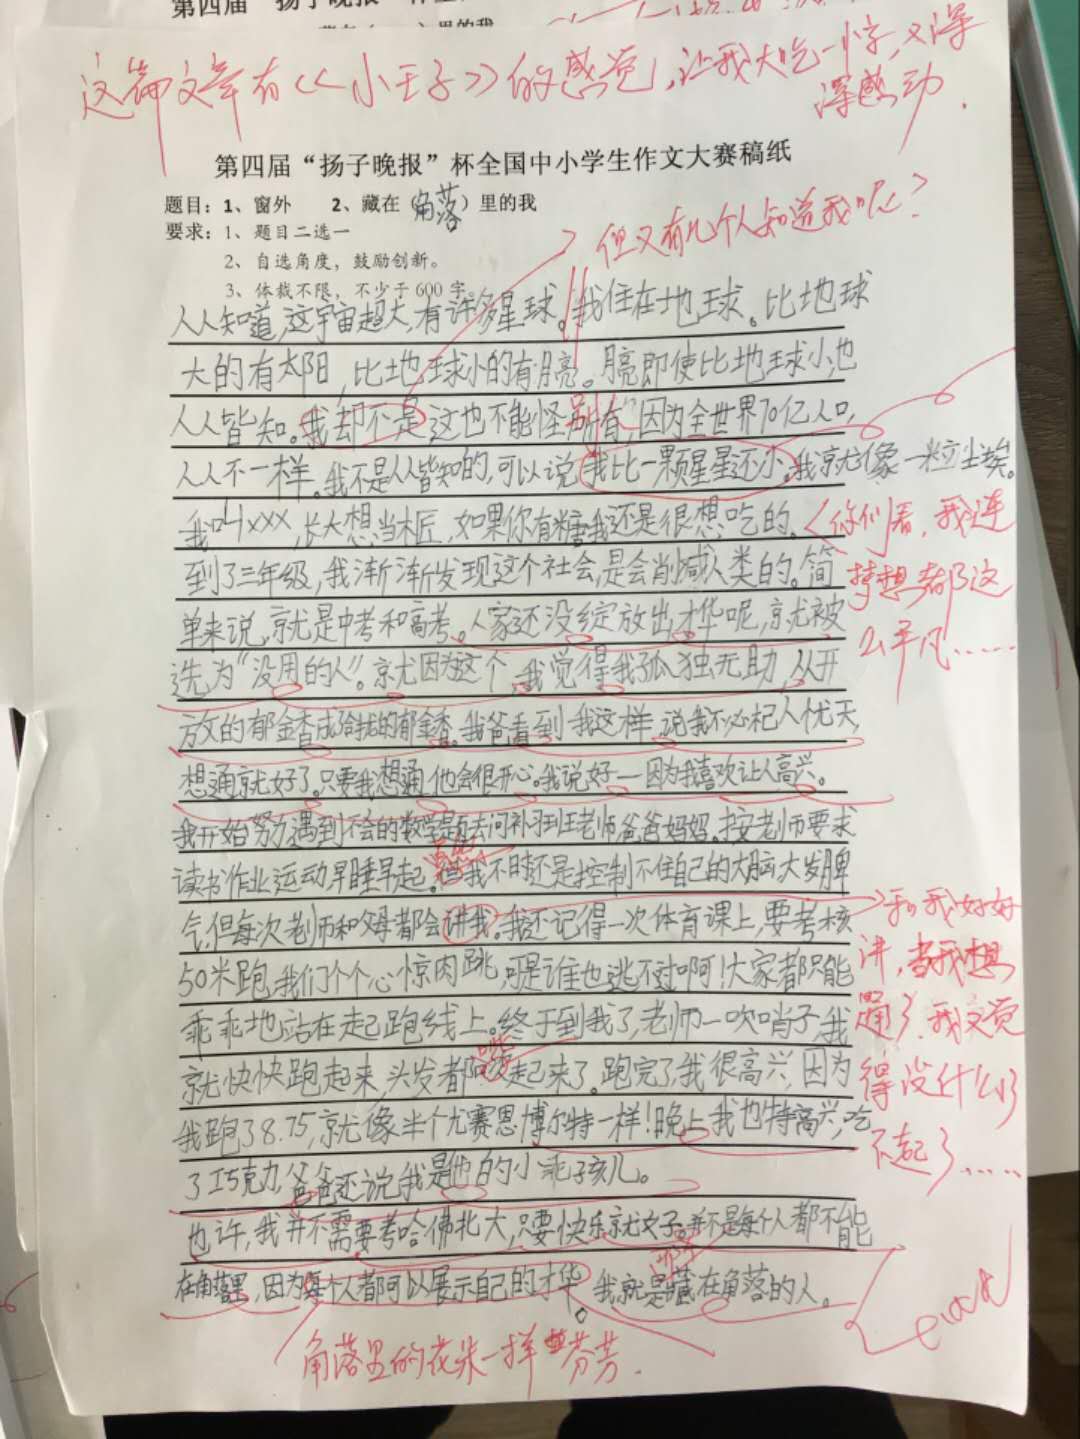 第四届“扬子晚报”
这篇文章有《小王子》的感觉,让我大吃一惊,又深
深感动.
第四届“扬子晚报”杯全国中小学生作文大赛稿纸
题目：1、窗外 2、藏在（角落）里的我
要求：1、题目二选一
2、自选角度，鼓励创新。
3、体裁不限，不少于600字。
但又有几个人知道我呢?
人人知道,这宇宙超大,有许多星球。我住在地球。比地球
大的有太阳,比地球小的有月亮。月亮即使比地球小,也
人人皆知。我却不是这也不能怪别有,因为全世界70亿人口,
人人不一样。我不是人人皆知的,可以说我比一颗星星还小。我就像一粒尘埃。
我叫xxx,长大想当木匠,如果你有糖我还是很想吃的。
你们看,我连
梦想都这
么平凡……
到了三年级,我渐渐发现这个社会,是会削减人类的。简
单来说,就是中考和高考。人家还没绽放出才华呢,就被
选为“没用的人”。就因为这个,我觉得我孤独无助,从开
放的郁金香成的郁金香。我爸看到我这样,说我不必杞人忧天,
想通就好了。只要我想通,他会很开心。我说好—因为我喜欢让人高兴。
我开始努力,遇到不会的数学题去问补习班老师,爸爸妈妈。按老师要求
读书作业运动早睡早起。我不时还是控制不住自己的大脑大发脾
气,但每次老师和父母都会讲我。我还记得一次体育课上,要考核
和我好好
讲,当我想
通了,我又觉
得没什么了
不起了……
50米跑,我们个个心惊肉跳,可是谁也逃不过啊!大家都只能
乖乖地站在起跑线上。终于到我了,老师一吹哨子,我
就快快跑起来,头发都起来了。跑完了,我很高兴,因为
我跑38.75,就像半个尤赛恩博尔特一样!晚上我也特高兴,吃
了巧克力,爸爸还说我是他的小乖孩儿。
也许,我并不需要考哈佛北大,只要快乐就好。并不是每个人都不能
在角落里,因为每个人都可以展示自己的才华。我就是藏在角落的人。
角落里的花朵一样芬芳.